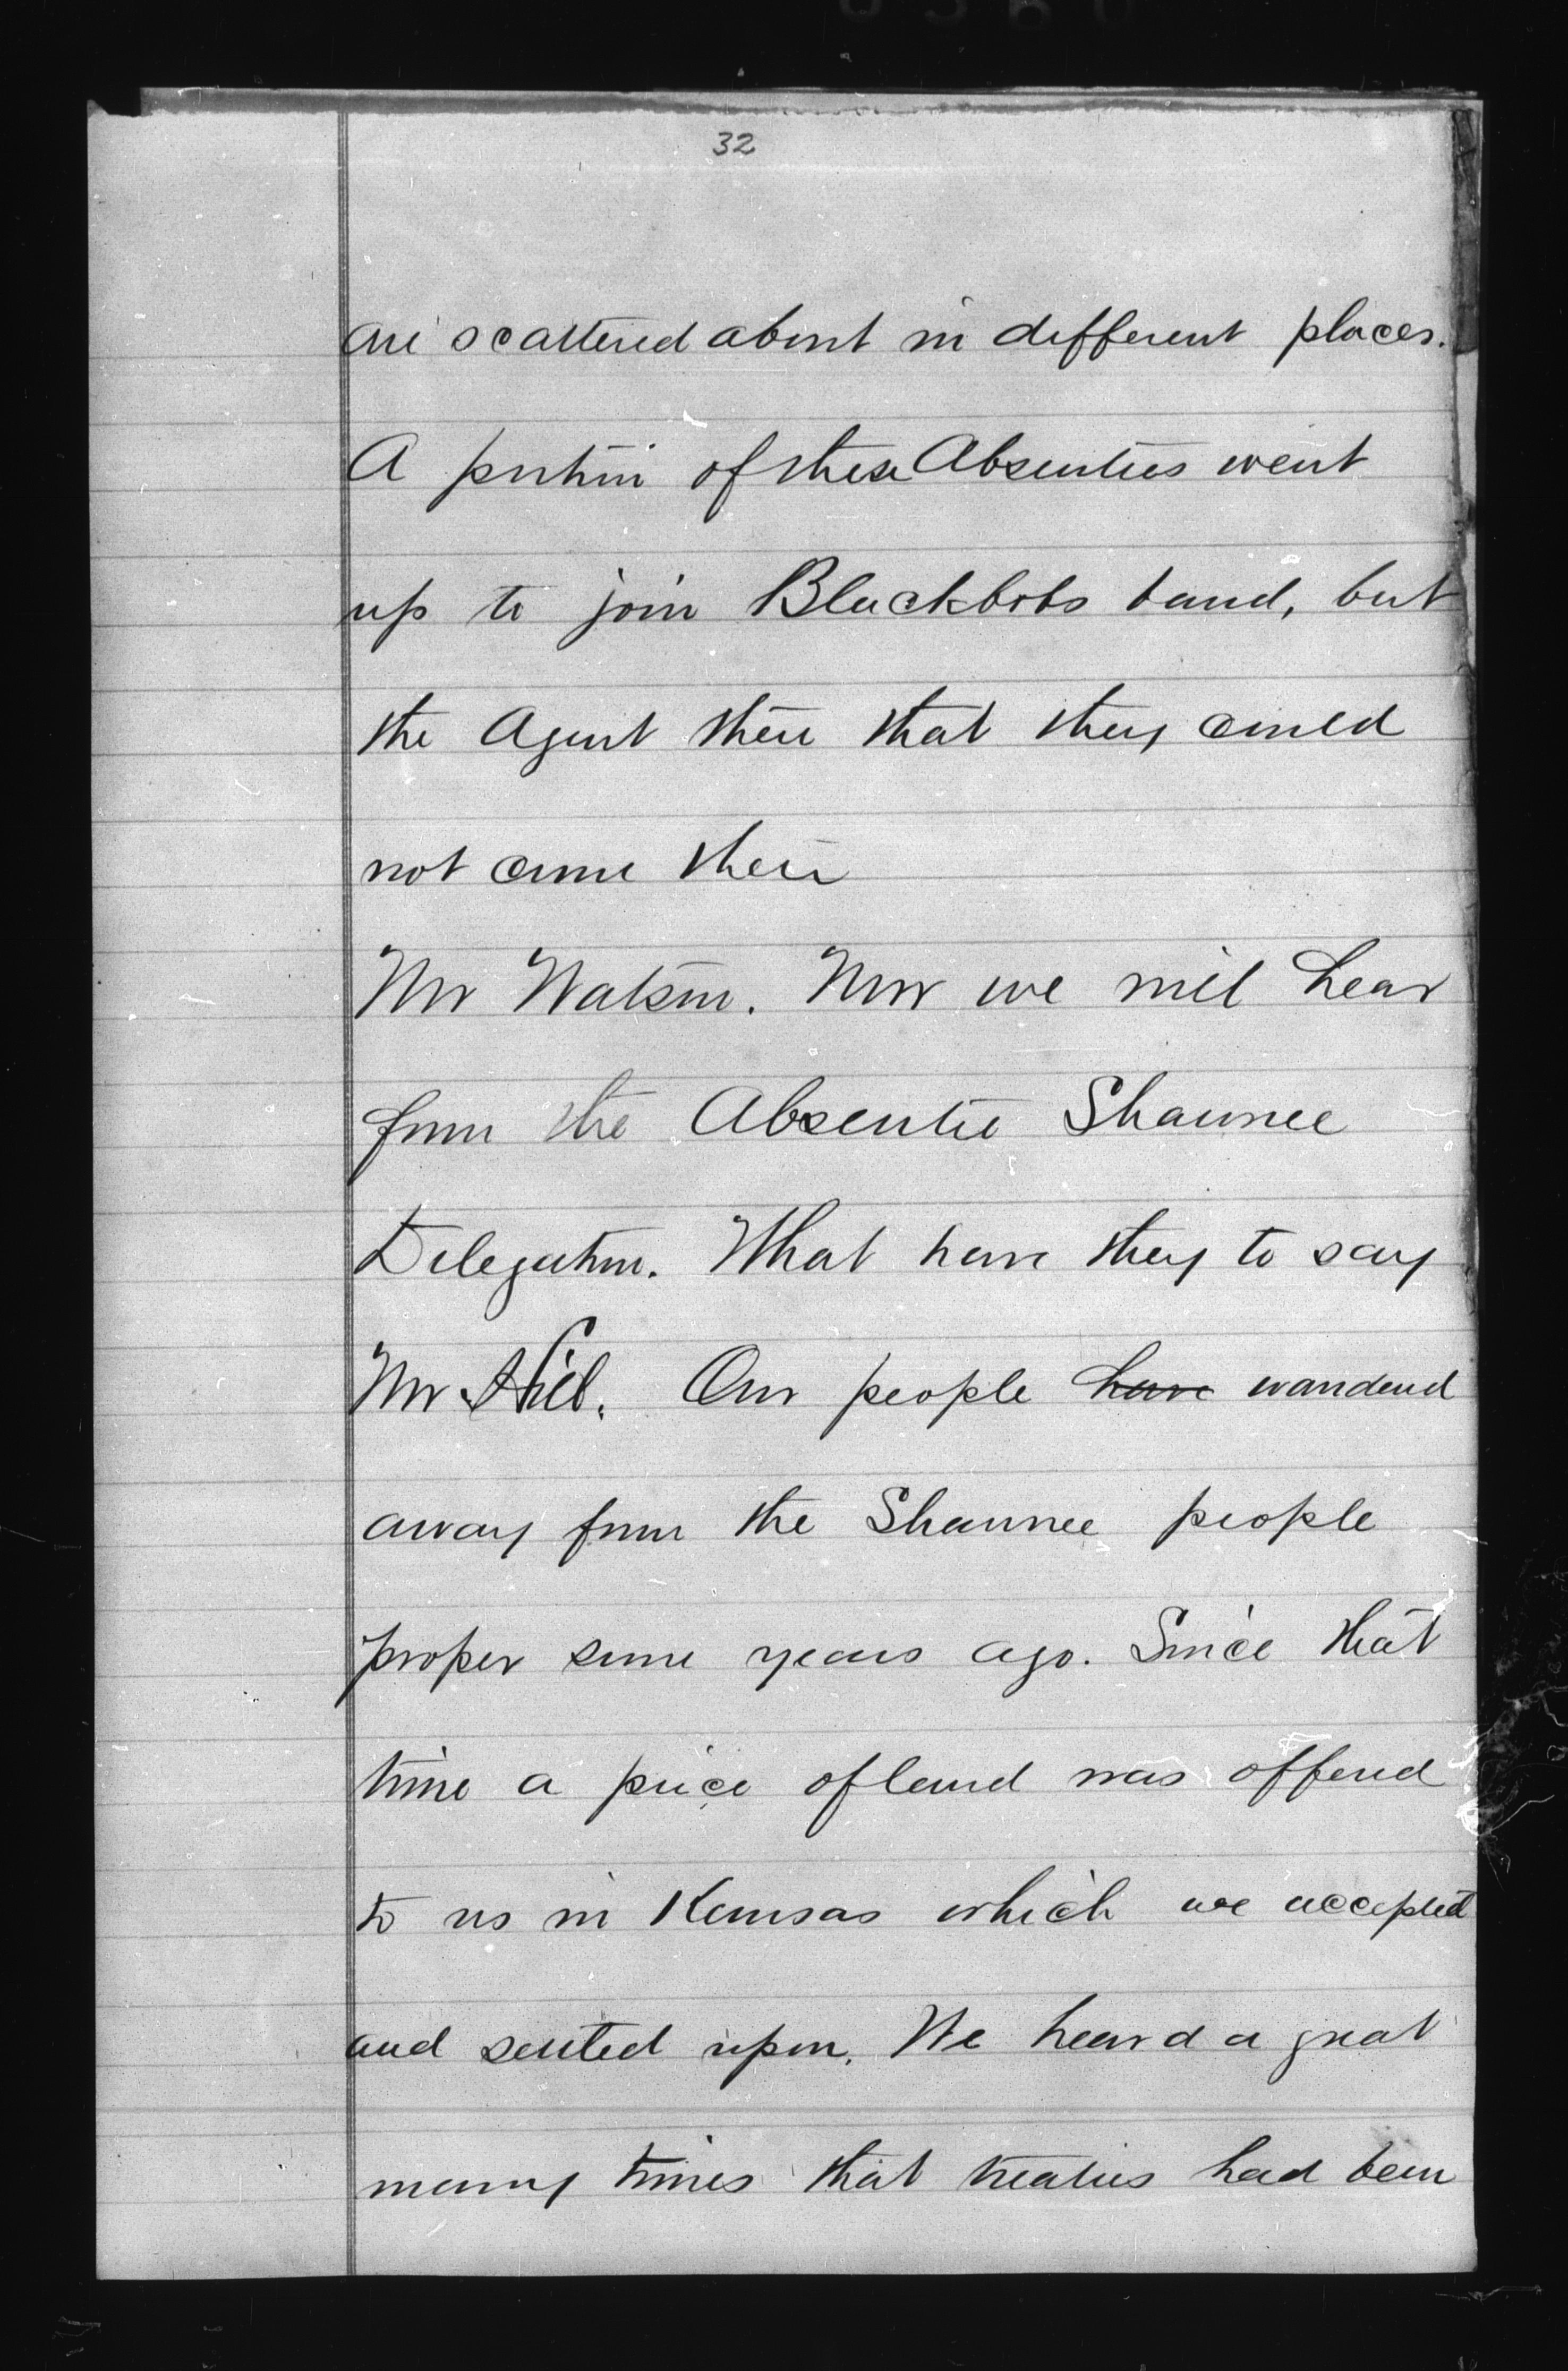 32
are scattered about in different places.
A portion of these Absentees went
up to join Blackbobs band, but
the Agent there that they could
not come there
Mr Watson. Now we will hear
from the Absentee Shawnee
Delegation. What have they to say
Mr. Our people have wandered
away from the Shawnee people
proper some years ago. Since that
time a piece of land was offered
to us in Kansas which we accepted
and settled upon. We heard a great
many times that treaties had been